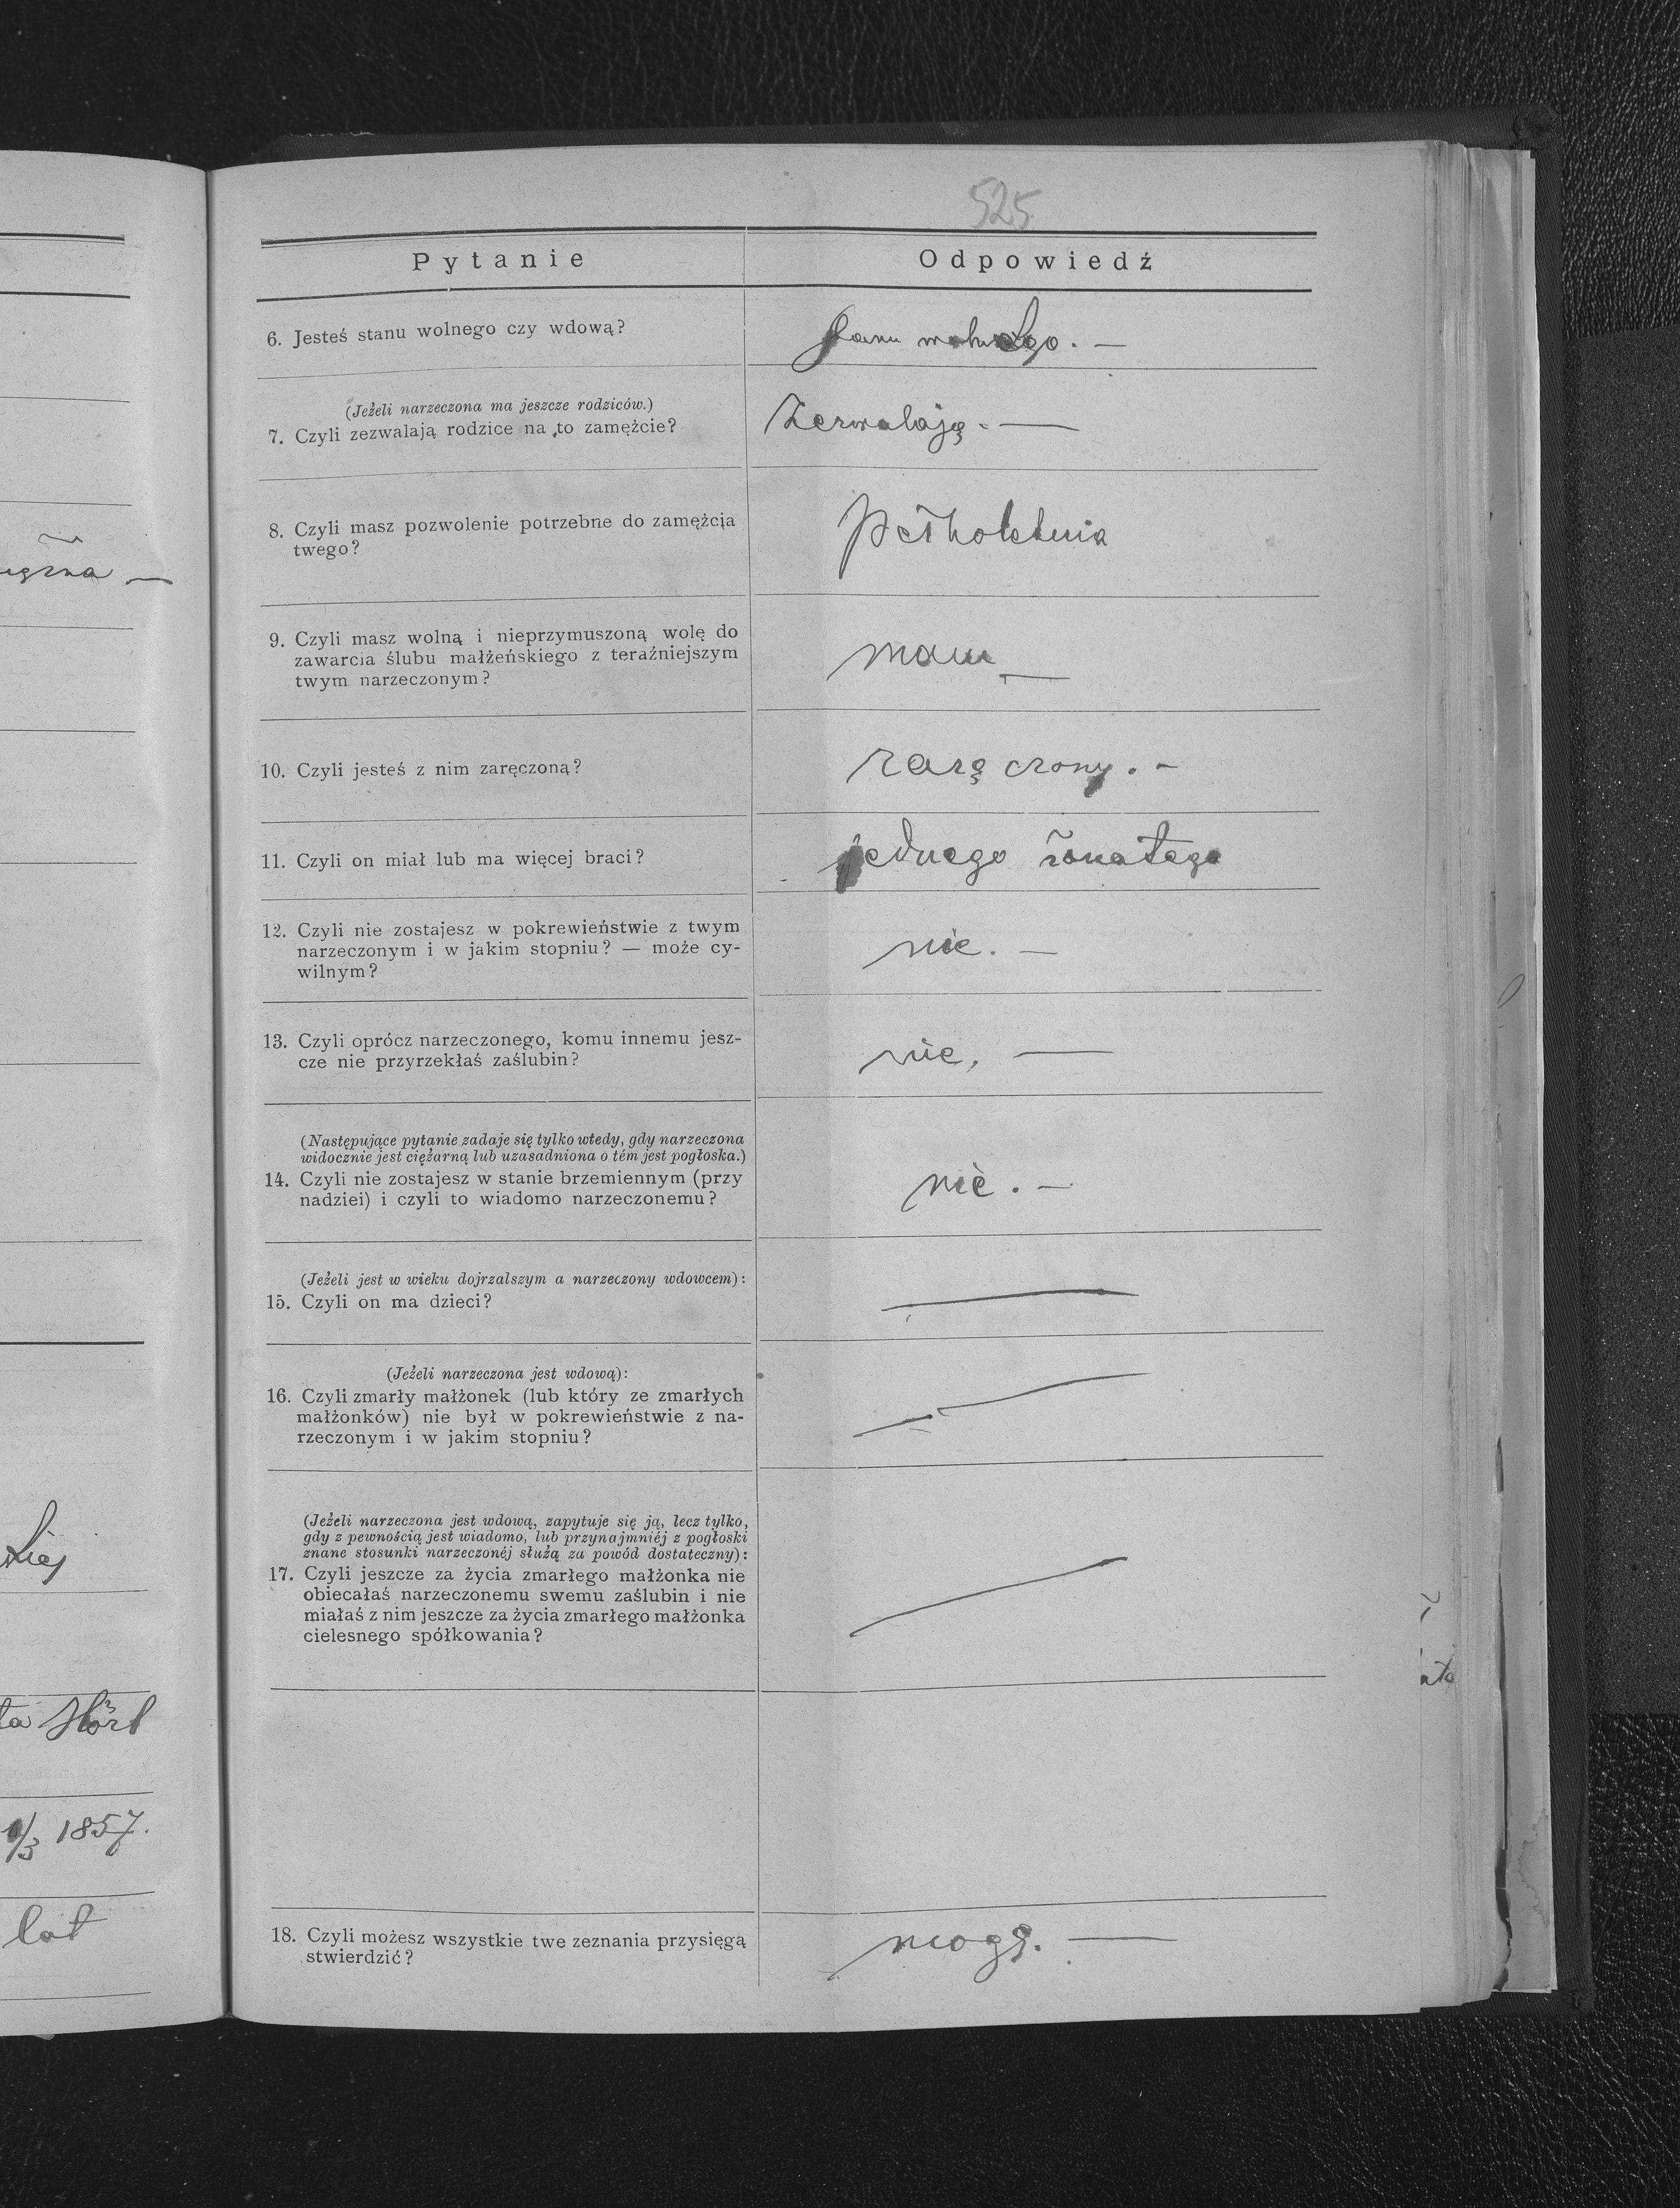 525
Pytanie
Odpowiedź
6. Jesteś stanu wolnego czy wdową?
stanu wolnego. —
(Jeżeli narzeczona ma jeszcze rodziców.)
7. Czyli zezwalają rodzice na to zamężcie?
Zezwalają. —
8. Czyli masz pozwolenie potrzebne do zamężcia
twego?
pełnoletnia
9. Czyli masz wolną i nieprzymuszoną wolę do
zawarcia ślubu małżeńskiego z teraźniejszym
twym narzeczonym?
mam —
10. Czyli jesteś z nim zaręczoną?
zaręczony. —
11. Czyli on miał lub ma więcej braci?
jednego żonatego
12. Czyli nie zostajesz w pokrewieństwie z twym
narzeczonym i w jakim stopniu? — może cy-
wilnym?
nie. —
13. Czyli oprócz narzeczonego, komu innemu jesz-
cze nie przyrzekłaś zaślubin?
nie. —
(Następujące pytanie zadaje się tylko wtedy, gdy narzeczona
widocznie jest ciężarną lub uzasadniona o tém jest pogłoska.)
14. Czyli nie zostajesz w stanie brzemiennym (przy
nadziei) i czyli to wiadomo narzeczonemu?
nie. —
(Jeżeli jest w wieku dojrzalszym a narzeczony wdowcem):
15. Czyli on ma dzieci?
—
(Jeżeli narzeczona jest wdową):
16. Czyli zmarły małżonek (lub który ze zmarłych
małżonków) nie był w pokrewieństwie z na-
rzeczonym i w jakim stopniu?
—
(Jeżeli narzeczona jest wdową, zapytuje się ją, lecz tylko,
gdy z pewnością jest wiadomo, lub przynajmniéj z pogłoski
znane stosunki narzeczonéj służą za powód dostateczny):
17. Czyli jeszcze za życia zmarłego małżonka nie
obiecałaś narzeczonemu swemu zaślubin i nie
miałaś z nim jeszcze za życia zmarłego małżonka
cielesnego spółkowania?
—
18. Czyli możesz wszystkie twe zeznania przysięgą
stwierdzić?
mogę. —
1857.
lat